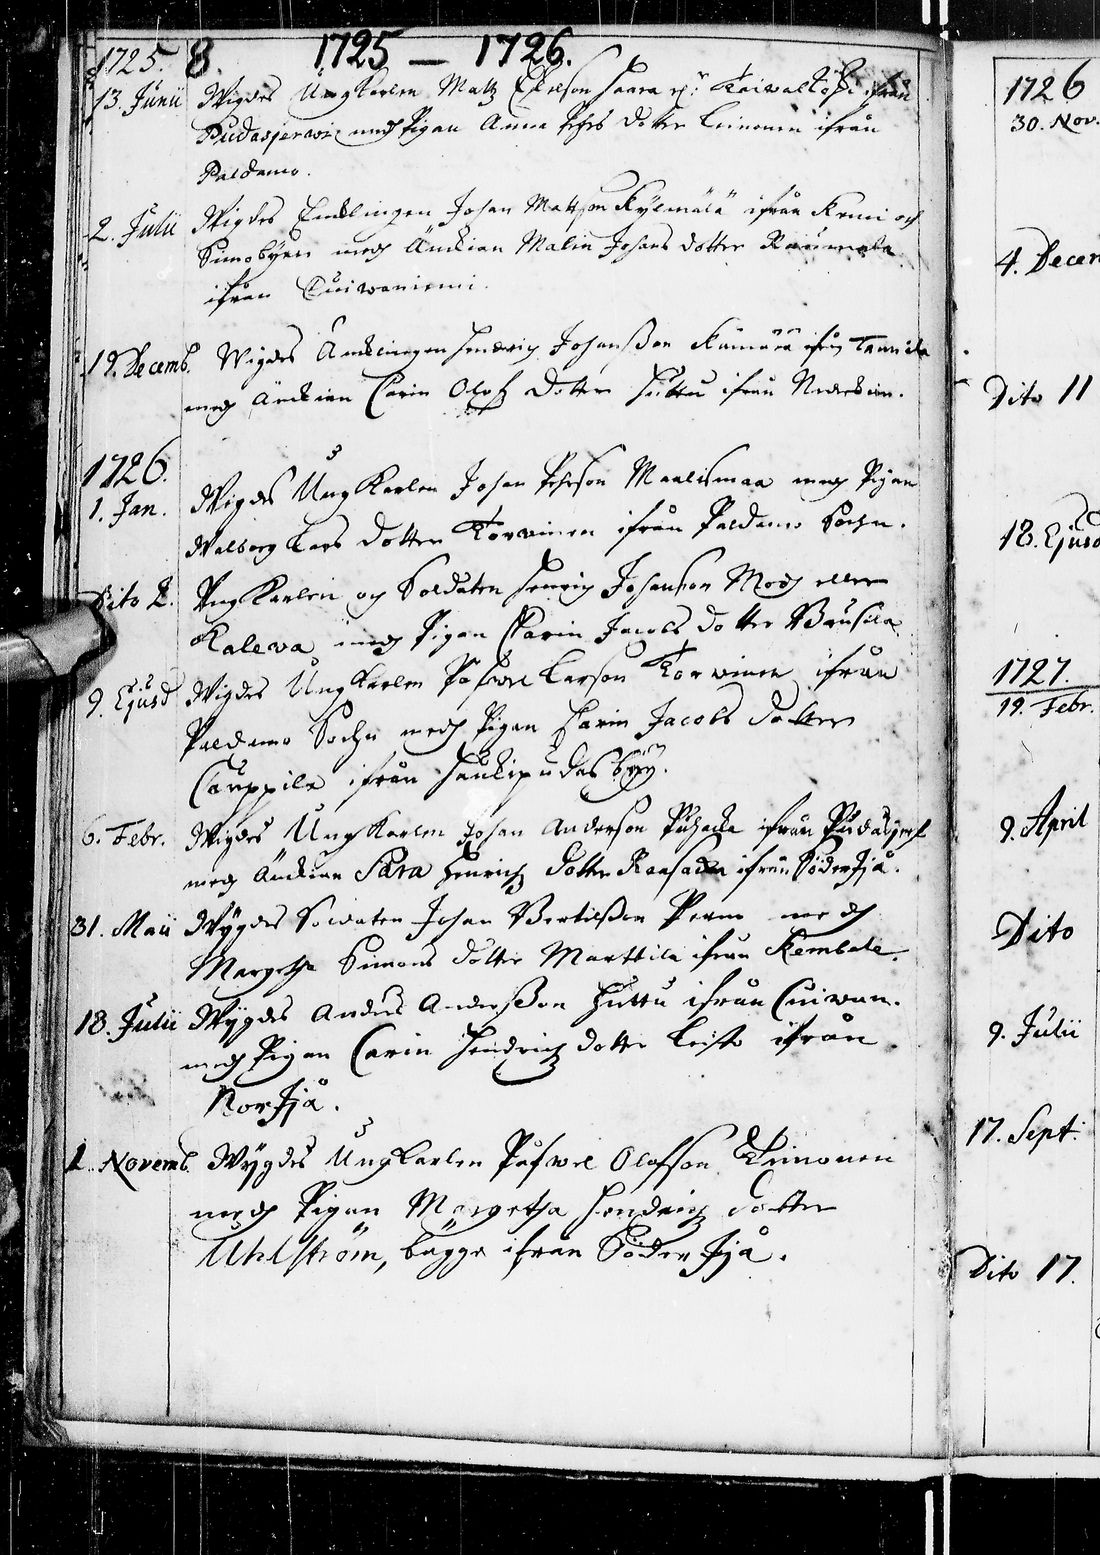 8. 1725 — 1726.
1725.
13. Junii Wigdes UngKarlen Matz Haara Kaiwal ifrån
Pudasjerwi med Pigan Anna Pehrs dotter Leinonen ifrån
Paldamo.
2. Julii Wigdes Encklingen Johan Mattson Kylmälä ifrån Kemi och
Simobyen med Änckian Malin Johans dotter
ifrån Cuiwaniemi.
19. Decemb. Wigdes Äncklingen Hendrich Johansson Kämärä ifrån
med Änckian Carin Olofs Dotter Huttu ifrån
1726.
1. Jan. Wigdes UngKarlen Johan Pehrson Maalismaa med Pigan
Walborg Lars Dotter Korwinen ifrån Paldamo Sochn.
Dito 2. UngKarlen och Soldaten Henrich Johanson Modh eller
Kalewa med Pigan Carin Jacobs dotter
9. Ejusd Wigdes UngKarlen Påfwel Larson Korwinen ifrån
Paldamo Sochn med Pigan Carin Jacobs dotter
Cauppila ifrån Haukipudas byy.
6. Febr. Wigdes UngKarlen Johan Anderson ifrån
med Änckian Sara Henrichz dotter ifrån Söder Ijå.
31. Maii Wygdes Soldaten Johan Bertilsson med
Margetha Simons dotter Marttila ifrån Kembele.
18. Julii Wygdes Anders Andersson Huttu ifrån Cuiwan.
med Pigan Carin Hendrichz dotter ifrån
Nor Ijå.
1. Novemb. Wygdes UngKarlen Påfwel Olofson Leinonen
med Pigan Margetha Hendrichz dotter
Uhlström, bägge ifrån Söder Ijå.
1726
30. Nov.
4. Decem
Dito 11
18. Ejusd
1727.
19. Febr.
9. April
Dito
9. Julii
17. Sept.
Dito 17.